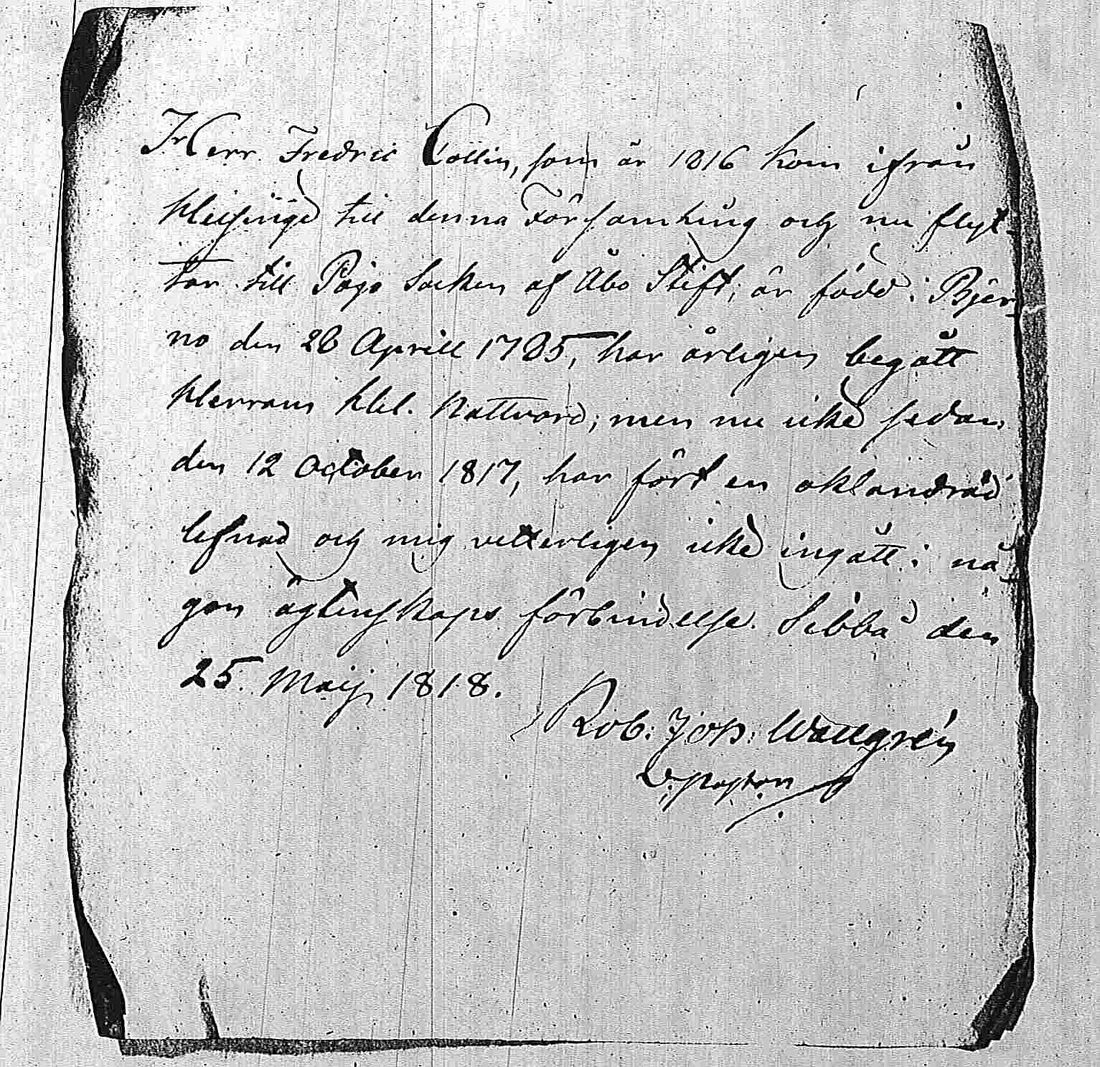 Herr Fredric Collin, som år 1816 kom ifrån
Helsinge till denna Församling och nu flyt-
tar till Pojo Socken af Åbo Stift, är född i Bjer-
no den 28 Aprill 1785, har årligen begått
Herrans Hel. Nattvard, men nu icke sedan
den 12 October 1817, har fört en oklandrad
lefnad och mig vetterligen icke ingått i nå-
gon ägtenskaps förbindelse. Sibbå den
25 Maij 1818.
Rob. Joh. Wallgrén
V. pastor